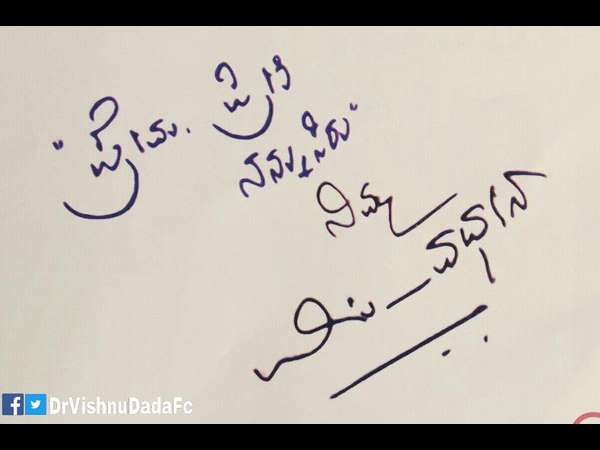 "ಪ್ರೇಮ. ಪ್ರೀತಿ
ನನ್ನುಸಿರು"
ನಿಮ್ಮ
ವಿಷ್ಣುವರ್ಧನ
DrVishnuDadaFc